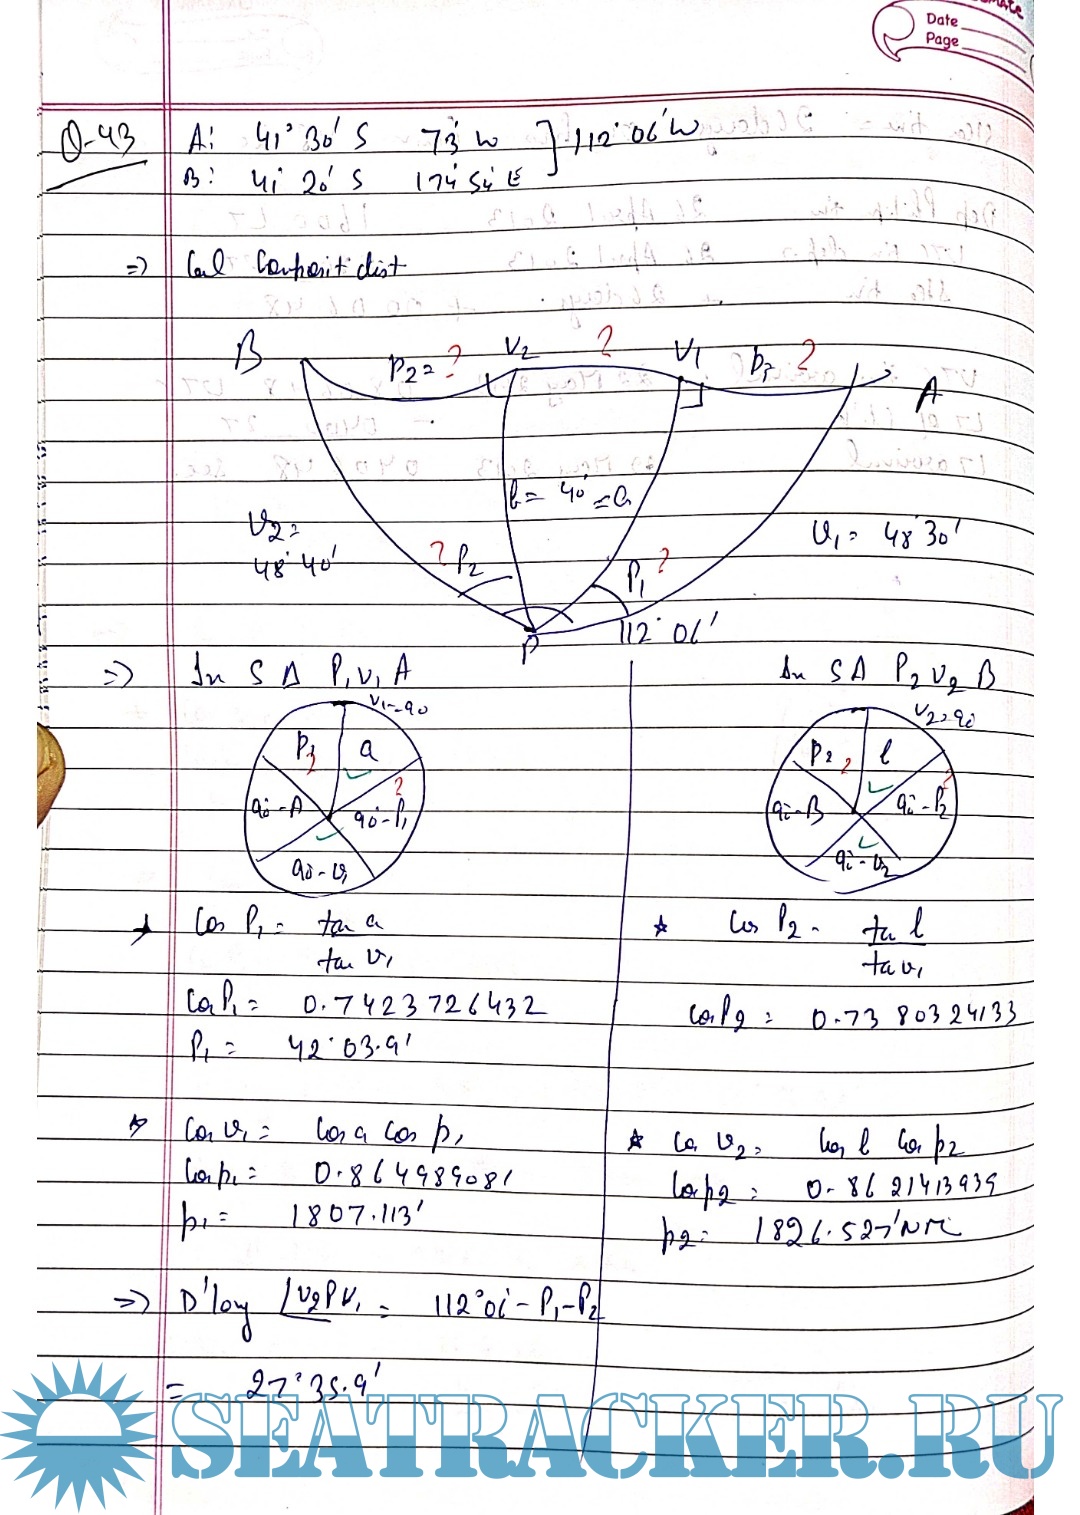 Date
Page
Q-43 A: 41° 30' S 73° W ] 112° 06' W
B: 41° 20' S 174° 54' E
=) Cal Composit dist
B p2 = ? V2 ? V1 p1 ? A
b = 40° = a
v2 = 48° 40'
v1 = 48° 30'
? P2 P1 ?
112° 06'
P
=) In S Δ P1 V1 A
In S Δ P2 V2 B
V1 = 90
P1 ? a ?
90 - A 90 - P1
90 - v1
V2 = 90
p2 ? b ?
90 - B 90 - P2
90 - v2
Cos P1 = tan a / tan v1
Cos P1 = 0.7423726432
P1 = 42° 03.9'
Cos P2 = ta b / ta v1
Cos P2 = 0.7380324133
Cos v1 = Cos a Cos p1
Cos p1 = 0.864989081
p1 = 1807.113'
Cos v2 = Cos b Cos p2
Cos p2 = 0.8621413939
p2 = 1826.527' NM
=) D'long ∠V2PV1 = 112° 06' - P1 - P2
= 27° 35.9'
SEATRACKER.RU